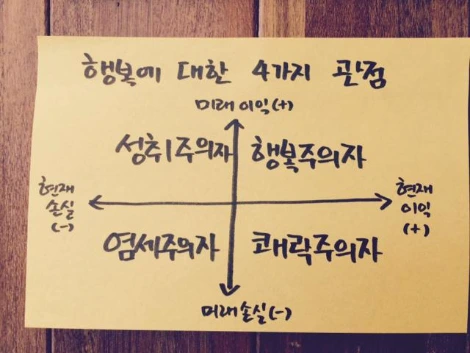 행복에 대한 4가지 관점
미래 이익(+)
성취주의자
행복주의자
현재
손실
(-)
현재
이익
(+)
염세주의자
쾌락주의자
미래손실(-)